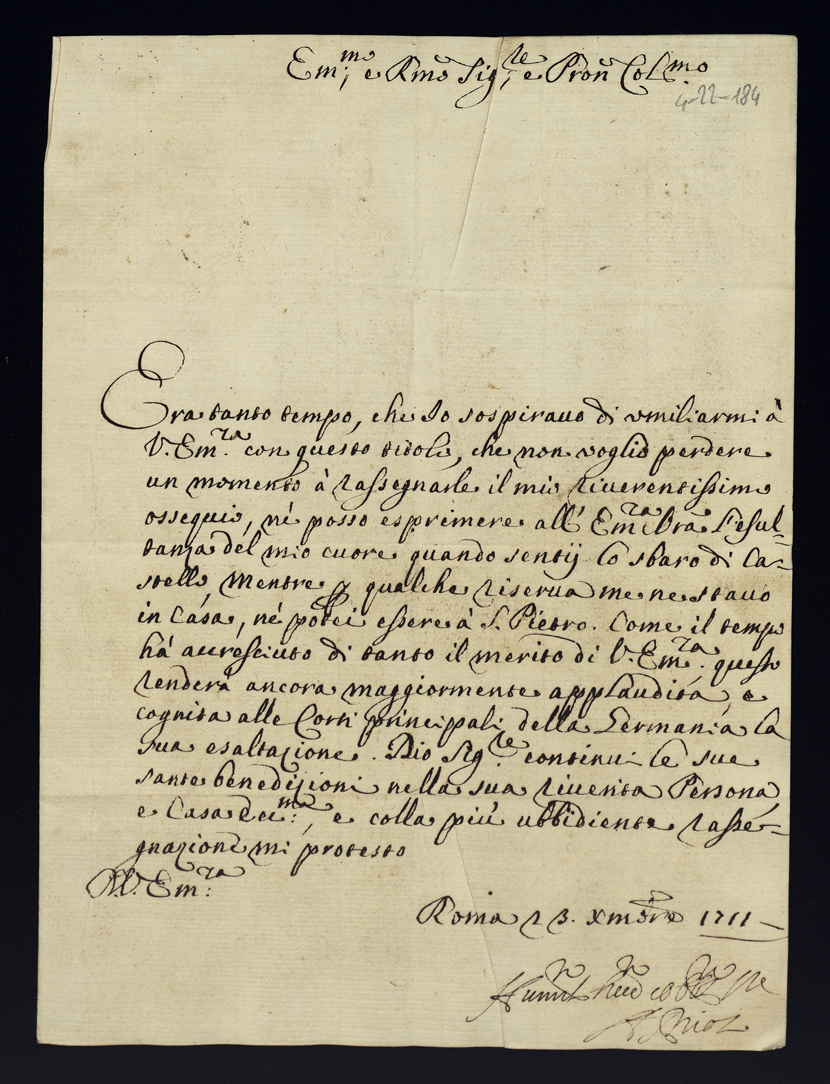 Em:mo e Rmo Sig:re e Pron Colmo
4-22-184
Era tanto tempo, che Io sospirauo di vmiliarmi à
V. Em:ra con questo titolo, che non voglio perdere
un momento à rassegnarle il mio riuerentissimo
ossequio, né posso esprimere all' Em:ra Vra l'esul-
tanza del mio cuore quando sentij lo sbaro di Ca-
stello, mentre p qualche riserua me ne stauo
in Casa, né potei essere à S. Pietro. Come il tempo
há accresciuto di tanto il merito di V. Em:ra questo
renderà ancora maggiormente applaudita, e
cognita alle Corti principali della Germania la
sua esaltazione. Dio Sig:re continui le sue
sante benedizioni nella sua riuerita Persona
e Casa :ma, e colla più ubbidiente rasse-
gnazione mi protesto
Di V. Em:ra
Roma 13. Xmbre 1711